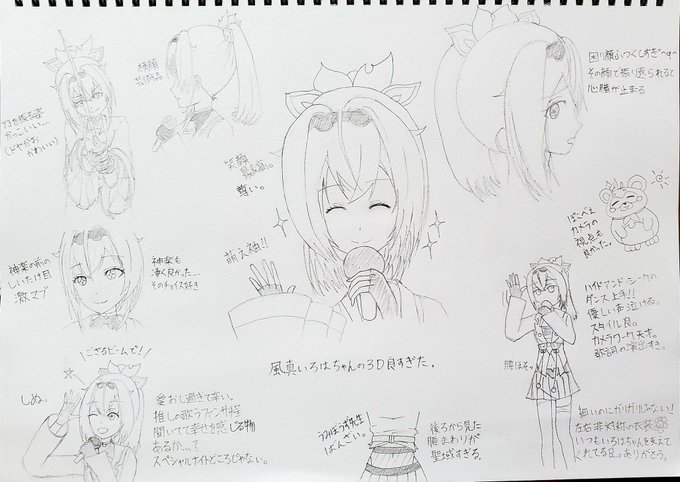 刀を振る姿
かっこいい…
(ドヤがお
かわいい)
横顔
芸術品
困り顔ふつくしすぎ
その顔で振り返られると
心臓が止まる
笑顔
最&高。
尊い。
萌え袖!!
ぽこべぇ
カメラの
視点も
良かった。
神楽の前の
しいたけ目
激マブ
神楽も
凄く良かった…
そのチョイス好き
ハイドアンド・シークの
ダンス上手!!
優しい声泣ける。
スタイル良。
カメラワーク天才。
歌詞の演出すき。
腰ほそっ
風真いろはちゃんの3D良すぎた。
ござるビームで!
しぬ。
愛おし過ぎて辛い。
推しの歌うファンサ程
聞いてて幸せを感じる物
あるか…?
スペシャルナイトどころじゃない。
うみぼうず先生
ばんざい。
後ろから見た
腰まわりが
聖域すぎる。
細いのにガリガリじゃない!
左右非対称の衣装
いつもいろはちゃんを支えて
くれてる足。ありがとう。